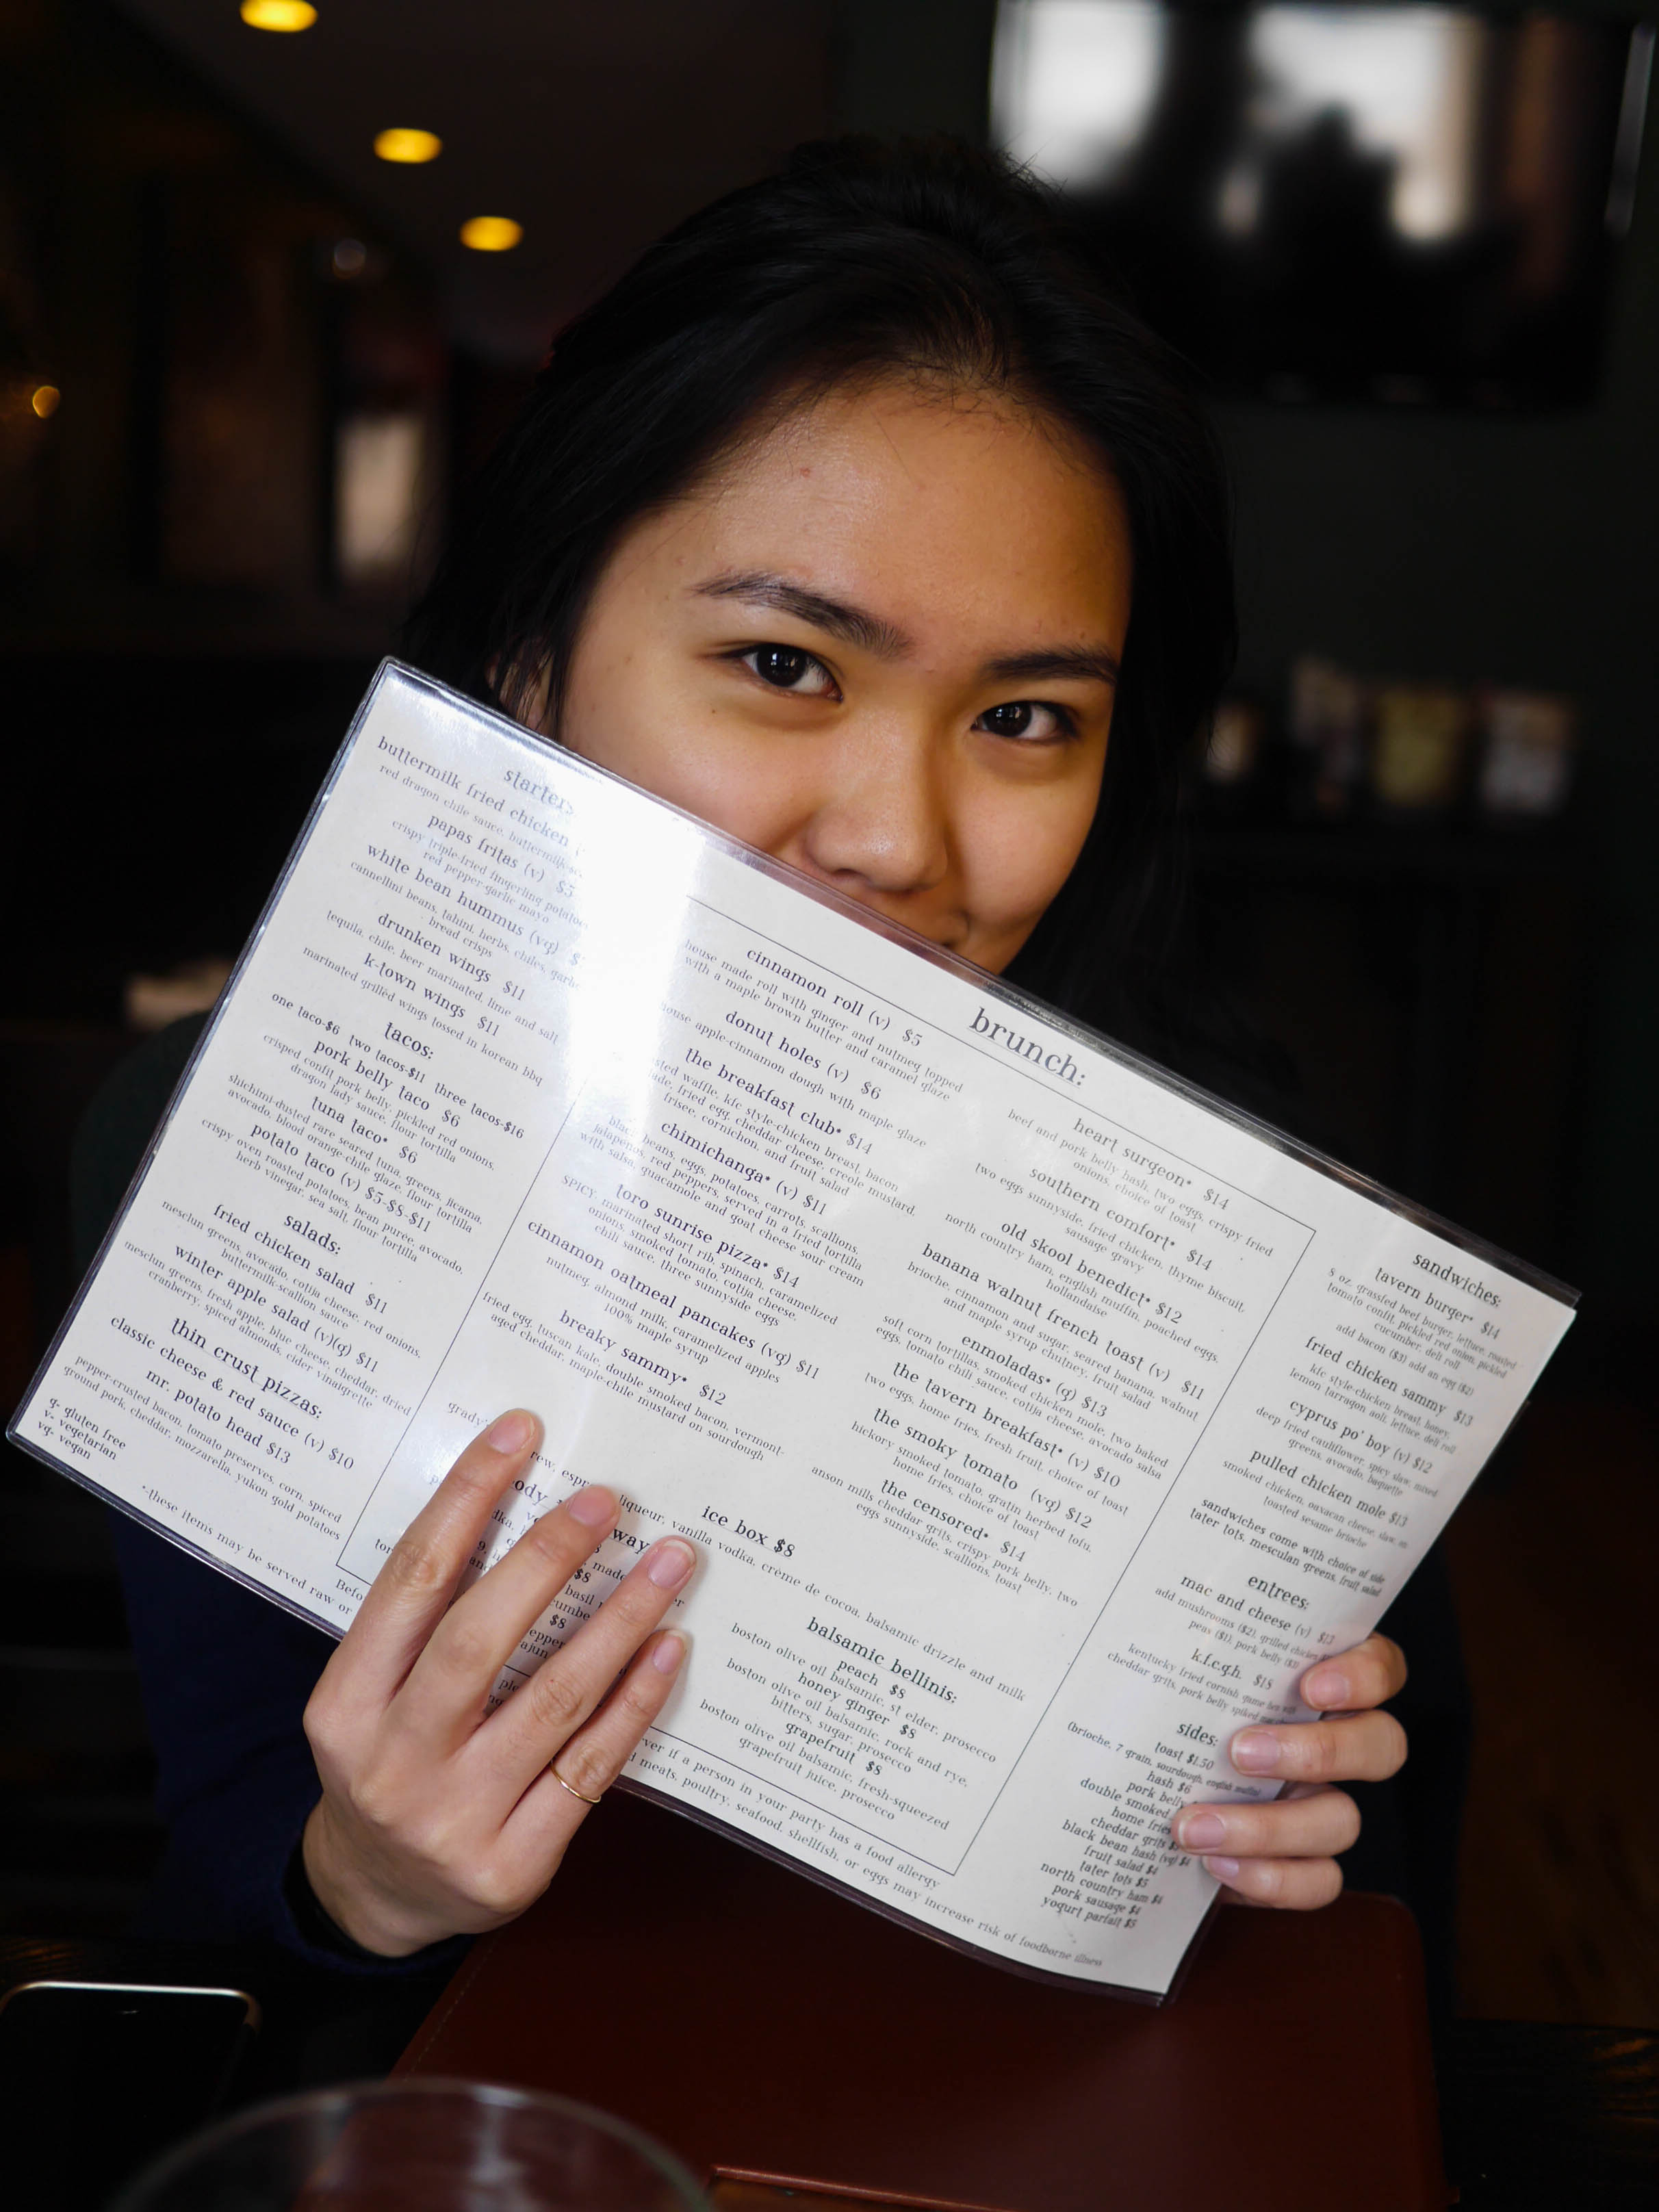 starters
buttermilk fried chicken
red dragon chile sauce, buttermilk
papas fritas (v) $5
crispy triple-fried fingerling potatoes
red pepper-garlic mayo
white bean hummus (vg)
cannellini beans, tahini, herbs, chiles, garlic
bread crisps
drunken wings $11
tequila, chile, beer marinated, lime and salt
k-town wings $11
marinated grilled wings tossed in korean bbq
tacos:
one taco-$6 two tacos-$11 three tacos-$16
pork belly taco $6
crisped confit pork belly, pickled red onions,
dragon lady sauce, flour tortilla
tuna taco* $6
shichimi-dusted rare seared tuna, greens, jicama,
avocado, blood orange-chile glaze, flour tortilla
potato taco (v) $5-$8-$11
crispy oven roasted potatoes, bean puree, avocado,
herb vinegar, sea salt, flour tortilla
salads:
fried chicken salad $11
mesclun greens, avocado, cotija cheese, red onions,
buttermilk-scallion sauce
winter apple salad (v)(g) $11
mesclun greens, fresh apple, blue cheese, cheddar, dried
cranberry, spiced almonds, cider vinaigrette
thin crust pizzas:
classic cheese & red sauce (v) $10
mr. potato head $13
pepper-crusted bacon, tomato preserves, corn, spiced
ground pork, cheddar, mozzarella, yukon gold potatoes
g- gluten free
v- vegetarian
vg- vegan
brunch:
cinnamon roll (v) $5
house made roll with ginger and nutmeg topped
with a maple brown butter and caramel glaze
donut holes (v) $6
house apple-cinnamon dough with maple glaze
the breakfast club* $14
waffle, kfc style-chicken breast, bacon
fried egg, cheddar cheese, creole mustard,
frisee, cornichon, and fruit salad
chimichanga* (v) $11
black beans, eggs, potatoes, carrots, scallions,
jalapenos, red peppers, served in a fried tortilla
with salsa, guacamole and goat cheese sour cream
toro sunrise pizza* $14
spicy, marinated short rib, spinach, caramelized
onions, smoked tomato, cotija cheese,
chili sauce, three sunnyside eggs
cinnamon oatmeal pancakes (vg) $11
nutmeg, almond milk, caramelized apples
100% maple syrup
breaky sammy* $12
fried egg, tuscan kale, double smoked bacon, vermont-
aged cheddar, maple-chile mustard on sourdough
heart surgeon* $14
beef and pork belly hash, two eggs, crispy fried
onions, choice of toast
southern comfort* $14
two eggs sunnyside, fried chicken, thyme biscuit,
sausage gravy
old skool benedict* $12
north country ham, english muffin, poached eggs,
hollandaise
banana walnut french toast (v) $11
brioche, cinnamon and sugar, seared banana, walnut
and maple syrup chutney, fruit salad
enmoladas* (g) $13
soft corn tortillas, smoked chicken mole, two baked
eggs, tomato chili sauce, cotija cheese, avocado salsa
the tavern breakfast* (v) $10
two eggs, home fries, fresh fruit, choice of toast
the smoky tomato (vg) $12
hickory smoked tomato, gratin herbed tofu,
home fries, choice of toast
the censored* $14
anson mills cheddar grits, crispy pork belly, two
eggs sunnyside, scallions, toast
ice box $8
liqueur, vanilla vodka, crème de cocoa, balsamic drizzle and milk
way
made
$8
basil
$8
balsamic bellinis:
peach $8
boston olive oil balsamic, st elder, prosecco
honey ginger $8
boston olive oil balsamic, rock and rye,
bitters, sugar, prosecco
grapefruit $8
boston olive oil balsamic, fresh-squeezed
grapefruit juice, prosecco
sandwiches:
tavern burger* $14
8 oz. grassfed beef burger, lettuce, roasted
tomato confit, pickled red onion, pickled
cucumber, deli roll
add bacon ($3) add an egg ($2)
fried chicken sammy $13
kfc style-chicken breast, honey,
lemon tarragon aoli, lettuce, deli roll
cyprus po' boy (v) $12
deep fried cauliflower, spicy slaw, mixed
greens, avocado, baguette
pulled chicken mole $13
smoked chicken, oaxacan cheese, slaw, on
toasted sesame brioche
sandwiches come with choice of side
tater tots, mesculan greens, fruit salad
entrees:
mac and cheese (v) $13
add mushrooms ($2), grilled chicken
peas ($1), pork belly ($3)
k.f.c.g.h. $18
kentucky fried cornish game hen with
cheddar grits, pork belly spiked
sides:
toast $1.50
(brioche, 7 grain, sourdough, english muffin)
hash $6
pork belly
double smoked
home fries
cheddar grits
black bean hash (vg) $4
fruit salad $4
tater tots $5
north country ham $4
pork sausage $4
yogurt parfait $5
if a person in your party has a food allergy
*-these items may be served raw or
meats, poultry, seafood, shellfish, or eggs may increase risk of foodborne illness